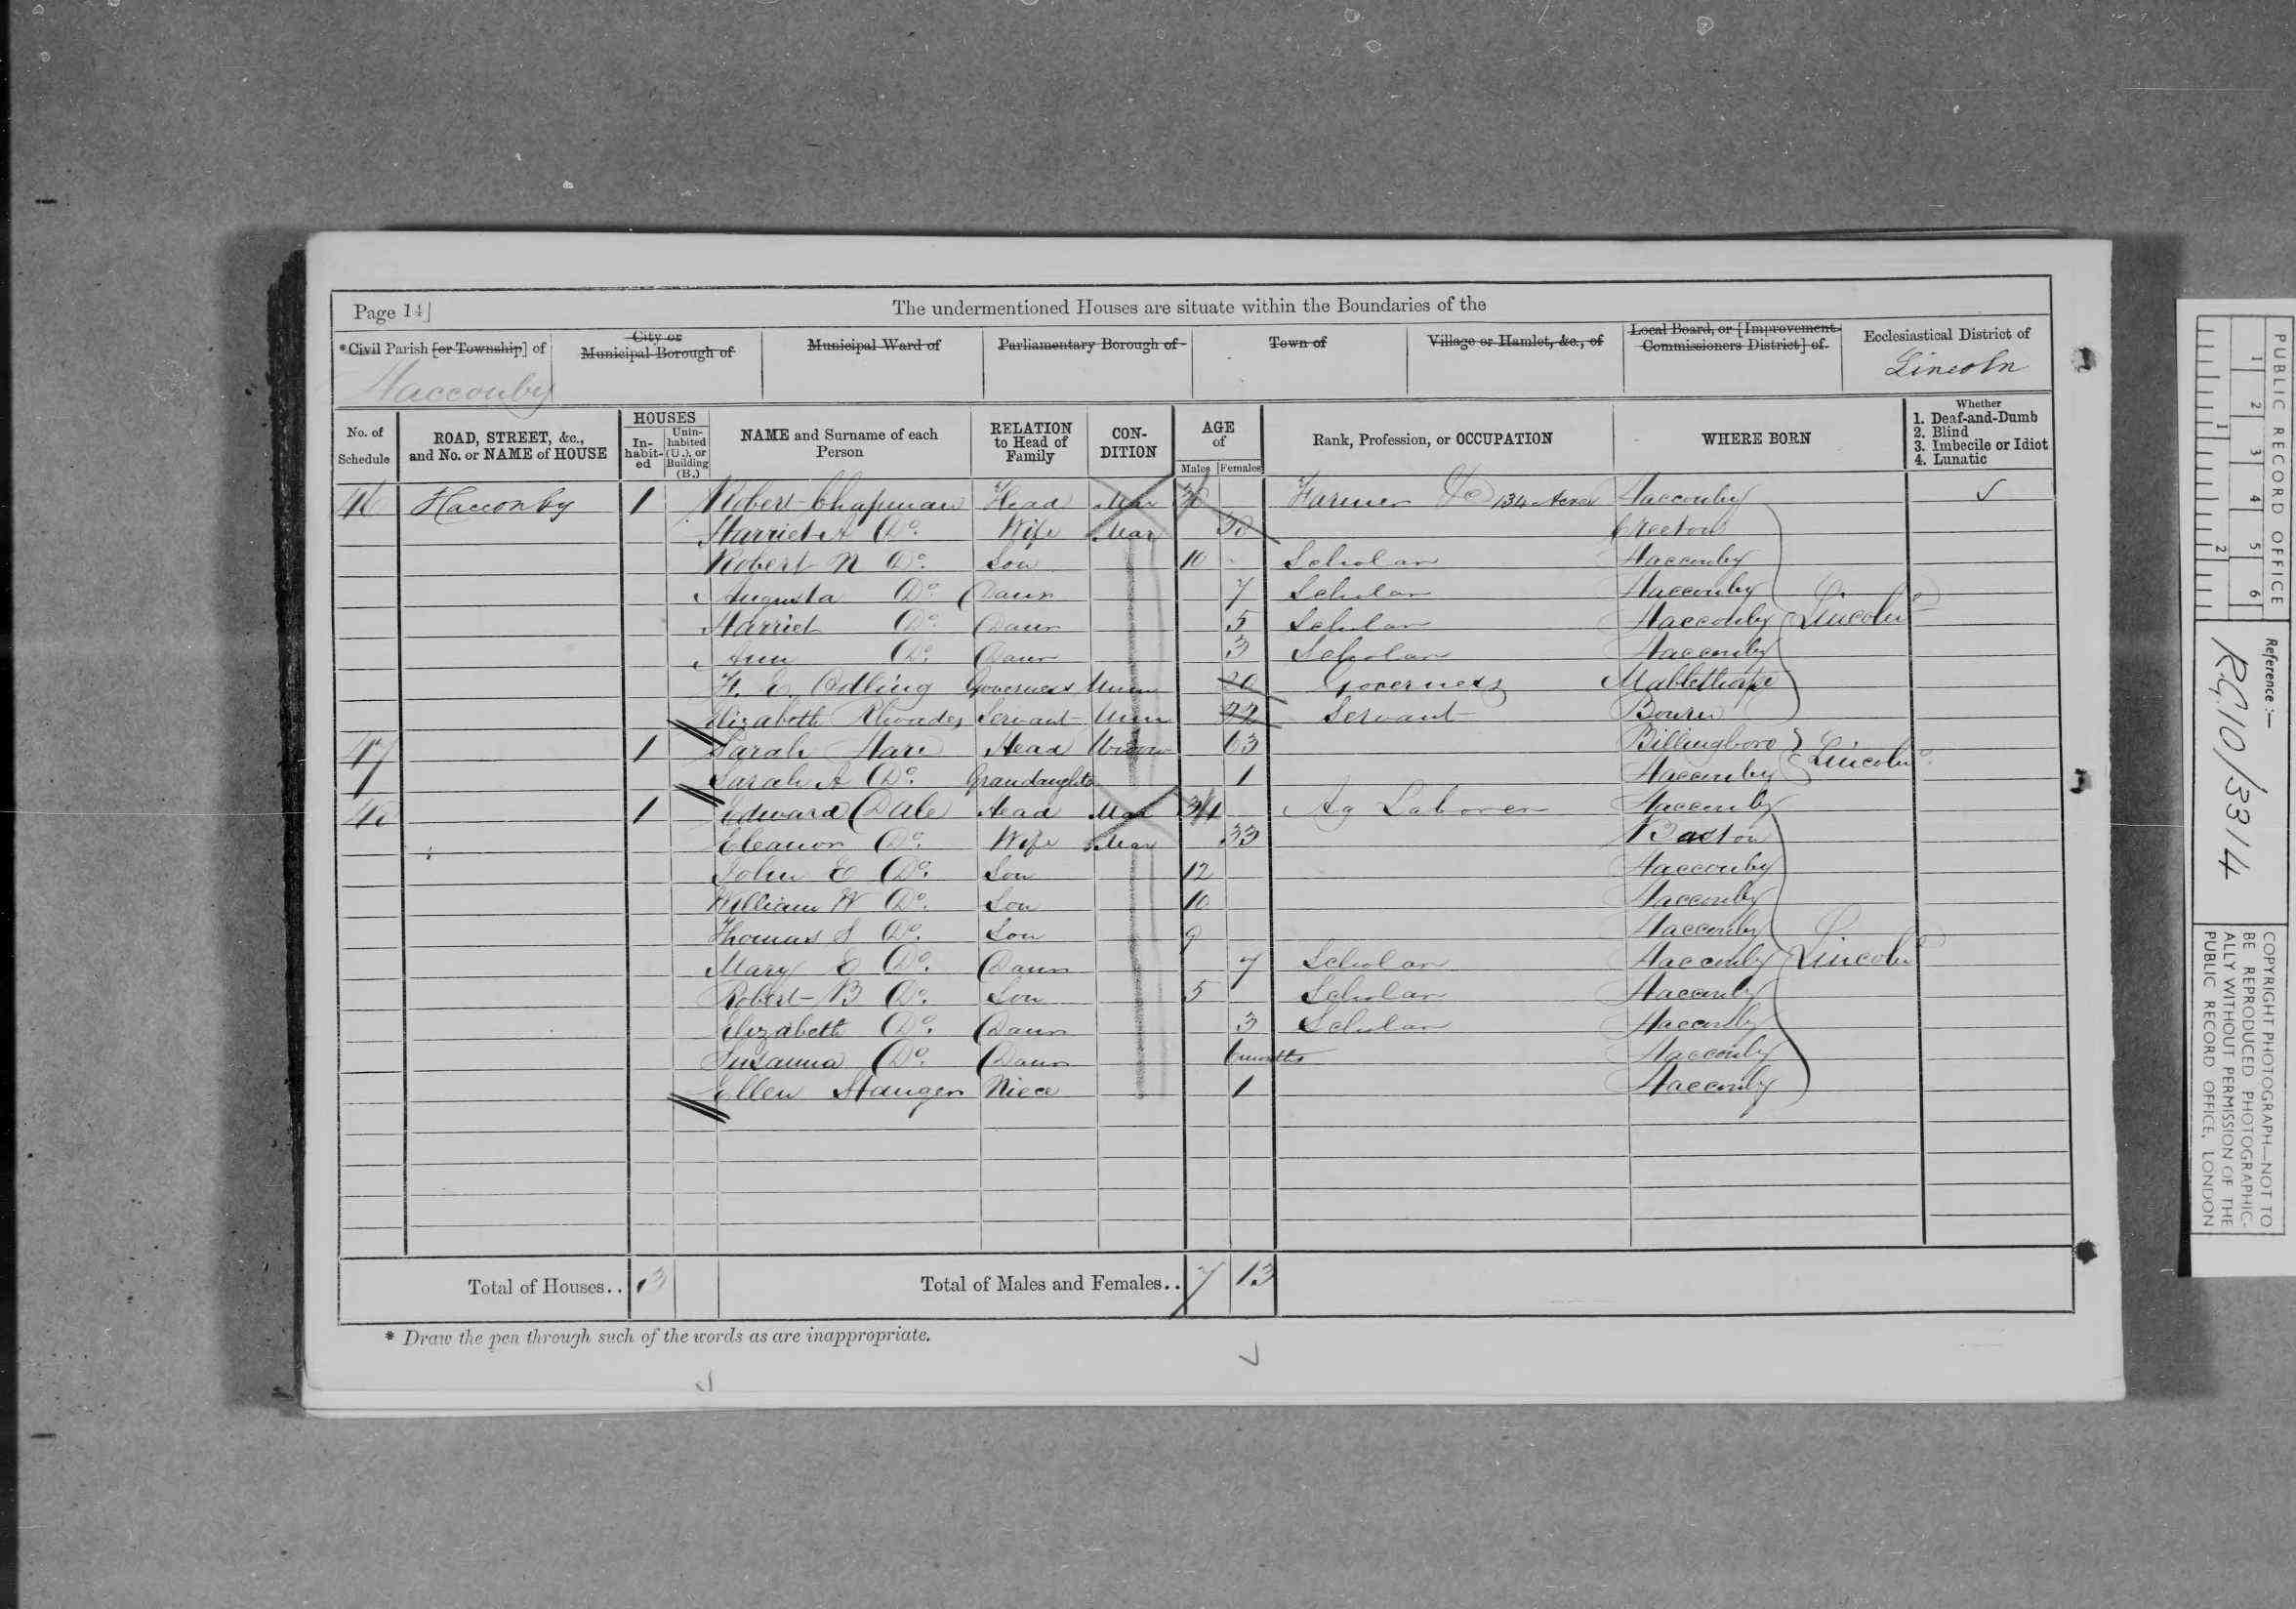 Page 14]
The undermentioned Houses are situate within the Boundaries of the
*Civil Parish [or Township] of
City or Municipal Borough of
Municipal Ward of
Parliamentary Borough of
Town of
Village or Hamlet, &c., of
Local Board, or [Improvement Commissioners District] of
Ecclesiastical District of
Hacconby
Lincoln
No. of Schedule
ROAD, STREET, &c., and No. or NAME of HOUSE
HOUSES
In-habit-ed
Unin-habited (U.), or Building (B.)
NAME and Surname of each Person
RELATION to Head of Family
CON-DITION
AGE of
Males
Females
Rank, Profession, or OCCUPATION
WHERE BORN
Whether
1. Deaf-and-Dumb
2. Blind
3. Imbecile or Idiot
4. Lunatic
46 Hacconby 1 Robert Chapman Head Mar Farmer 134 Acres Hacconby
Harriet A Do. Wife Mar 30
Robert N Do. Son 10 Scholar Hacconby
Augusta Do. Daur 7 Scholar Hacconby
Harriet Do. Daur 5 Scholar Hacconby Lincoln
Ann Do. Daur 3 Scholar Hacconby
E. Odling Governess Unm 20 Governess Mablethorpe
Elizabeth Rhoades Servant Unm 22 Servant Bourn
47 1 Sarah Hare Head Widow 63 Billingboro
Sarah A Do. Grandaughter 1 Hacconby Lincoln
48 1 Edward Dale Head Mar 34 Ag Laborer Hacconby
Eleanor Do. Wife Mar 33 Baston
John E Do. Son 12 Hacconby
William W Do. Son 10 Hacconby
Thomas S Do. Son 9 Hacconby
Mary E Do. Daur 7 Scholar Hacconby Lincoln
Robert B Do. Son 5 Scholar Hacconby
Elizabeth Do. Daur 3 Scholar Hacconby
Susanna Do. Daur 6 months Hacconby
Ellen Stanger Niece 1 Hacconby
Total of Houses.. 3
Total of Males and Females.. 7 13
* Draw the pen through such of the words as are inappropriate.
PUBLIC RECORD OFFICE
1 2 3 4 5 6
1 2
Reference :—
RG10/3314
COPYRIGHT PHOTOGRAPH—NOT TO
BE REPRODUCED PHOTOGRAPHIC-
ALLY WITHOUT PERMISSION OF THE
PUBLIC RECORD OFFICE, LONDON